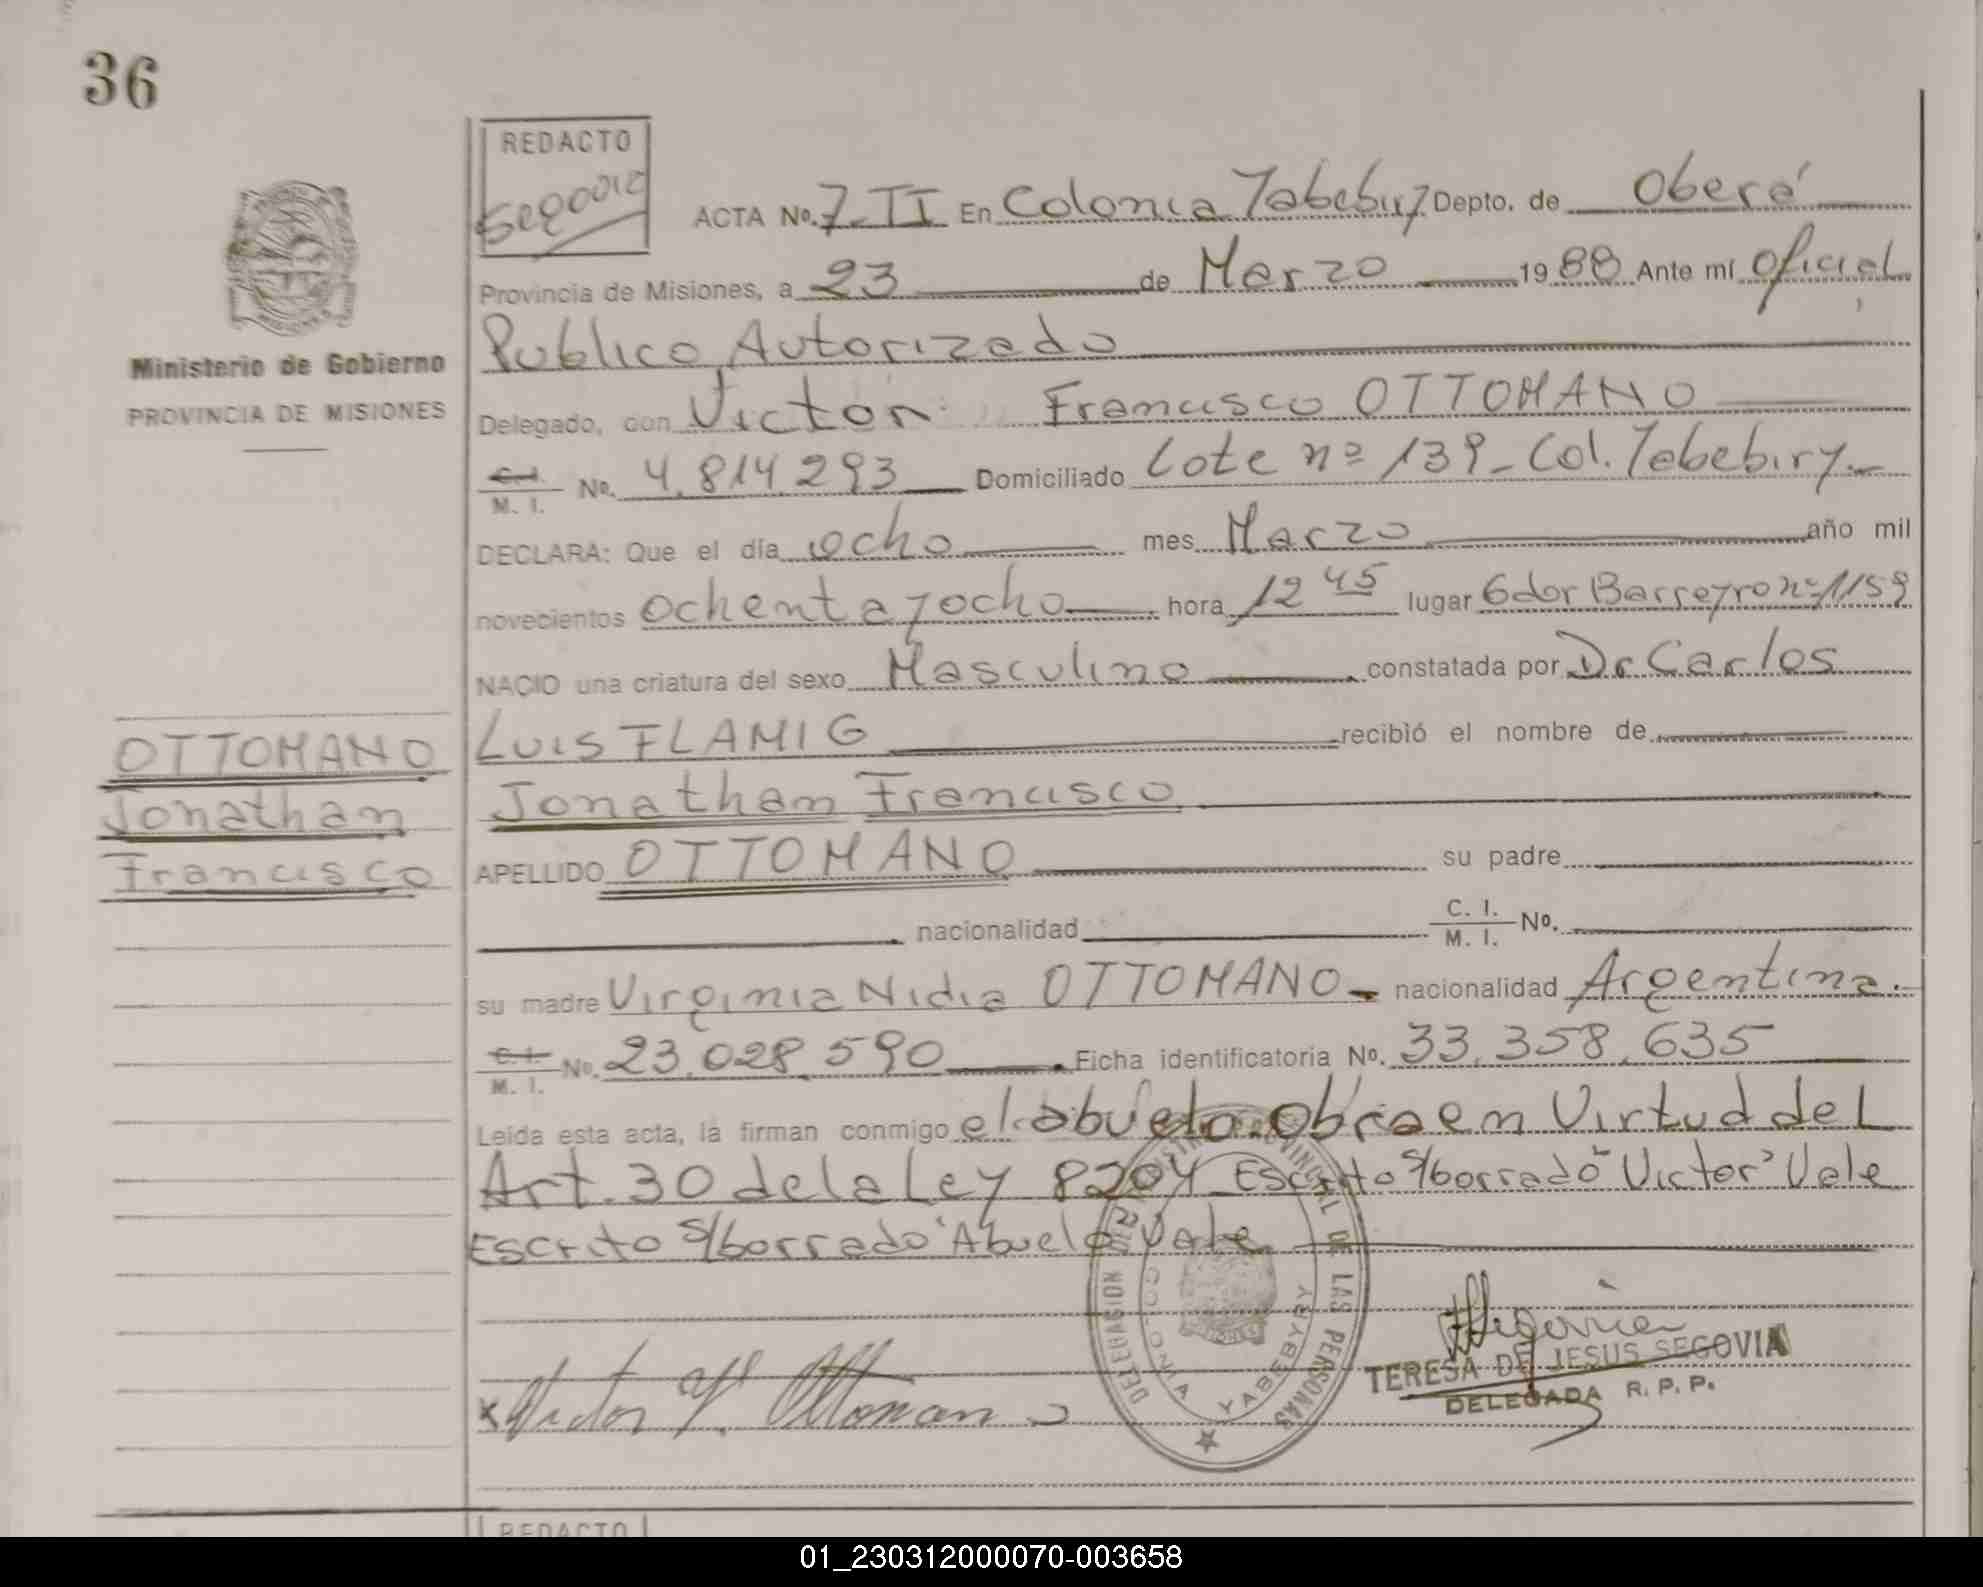 36
REDACTO
Segovia
ACTA No. 7-TI En Colonia Yabebiry Depto. de Oberá
Provincia de Misiones, a 23 de Marzo 1988 Ante mí Oficial
Publico Autorizado
Ministerio de Gobierno
PROVINCIA DE MISIONES
Delegado, con Victor Francisco OTTOMANO
C.I. M. I. No. 4.814.293 Domiciliado Lote nº 139 - Col. Yabebiry.-
DECLARA: Que el día ocho mes Marzo año mil
novecientos ochenta y ocho hora 12 45 lugar Gdor Barreyro nº 1159
NACIO una criatura del sexo Masculino constatada por Dr Carlos
LUIS FLAMIG recibió el nombre de
OTTOMANO
Jonathan
Francisco
Jonathan Francisco
APELLIDO OTTOMANO su padre
nacionalidad C. I. M. I. No.
su madre Virginia Nidia OTTOMANO - nacionalidad Argentina.
C. I. M. I. No. 23.028.590 Ficha identificatoria No. 33.358.635
Leída esta acta, la firman conmigo el abuelo. Obra en Virtud del
Art. 30 de la Ley 8204 Escrito s/borrado "Victor" Vale
Escrito s/borrado "Abuelo" Vale
DELEGACION DEL REGISTRO PROVINCIAL DE LAS PERSONAS
COLONIA YABEBYRY
Segovia
TERESA DE JESUS SEGOVIA
DELEGADA R. P. P.
x Victor F. Ottomano
REDACTO
01_230312000070-003658